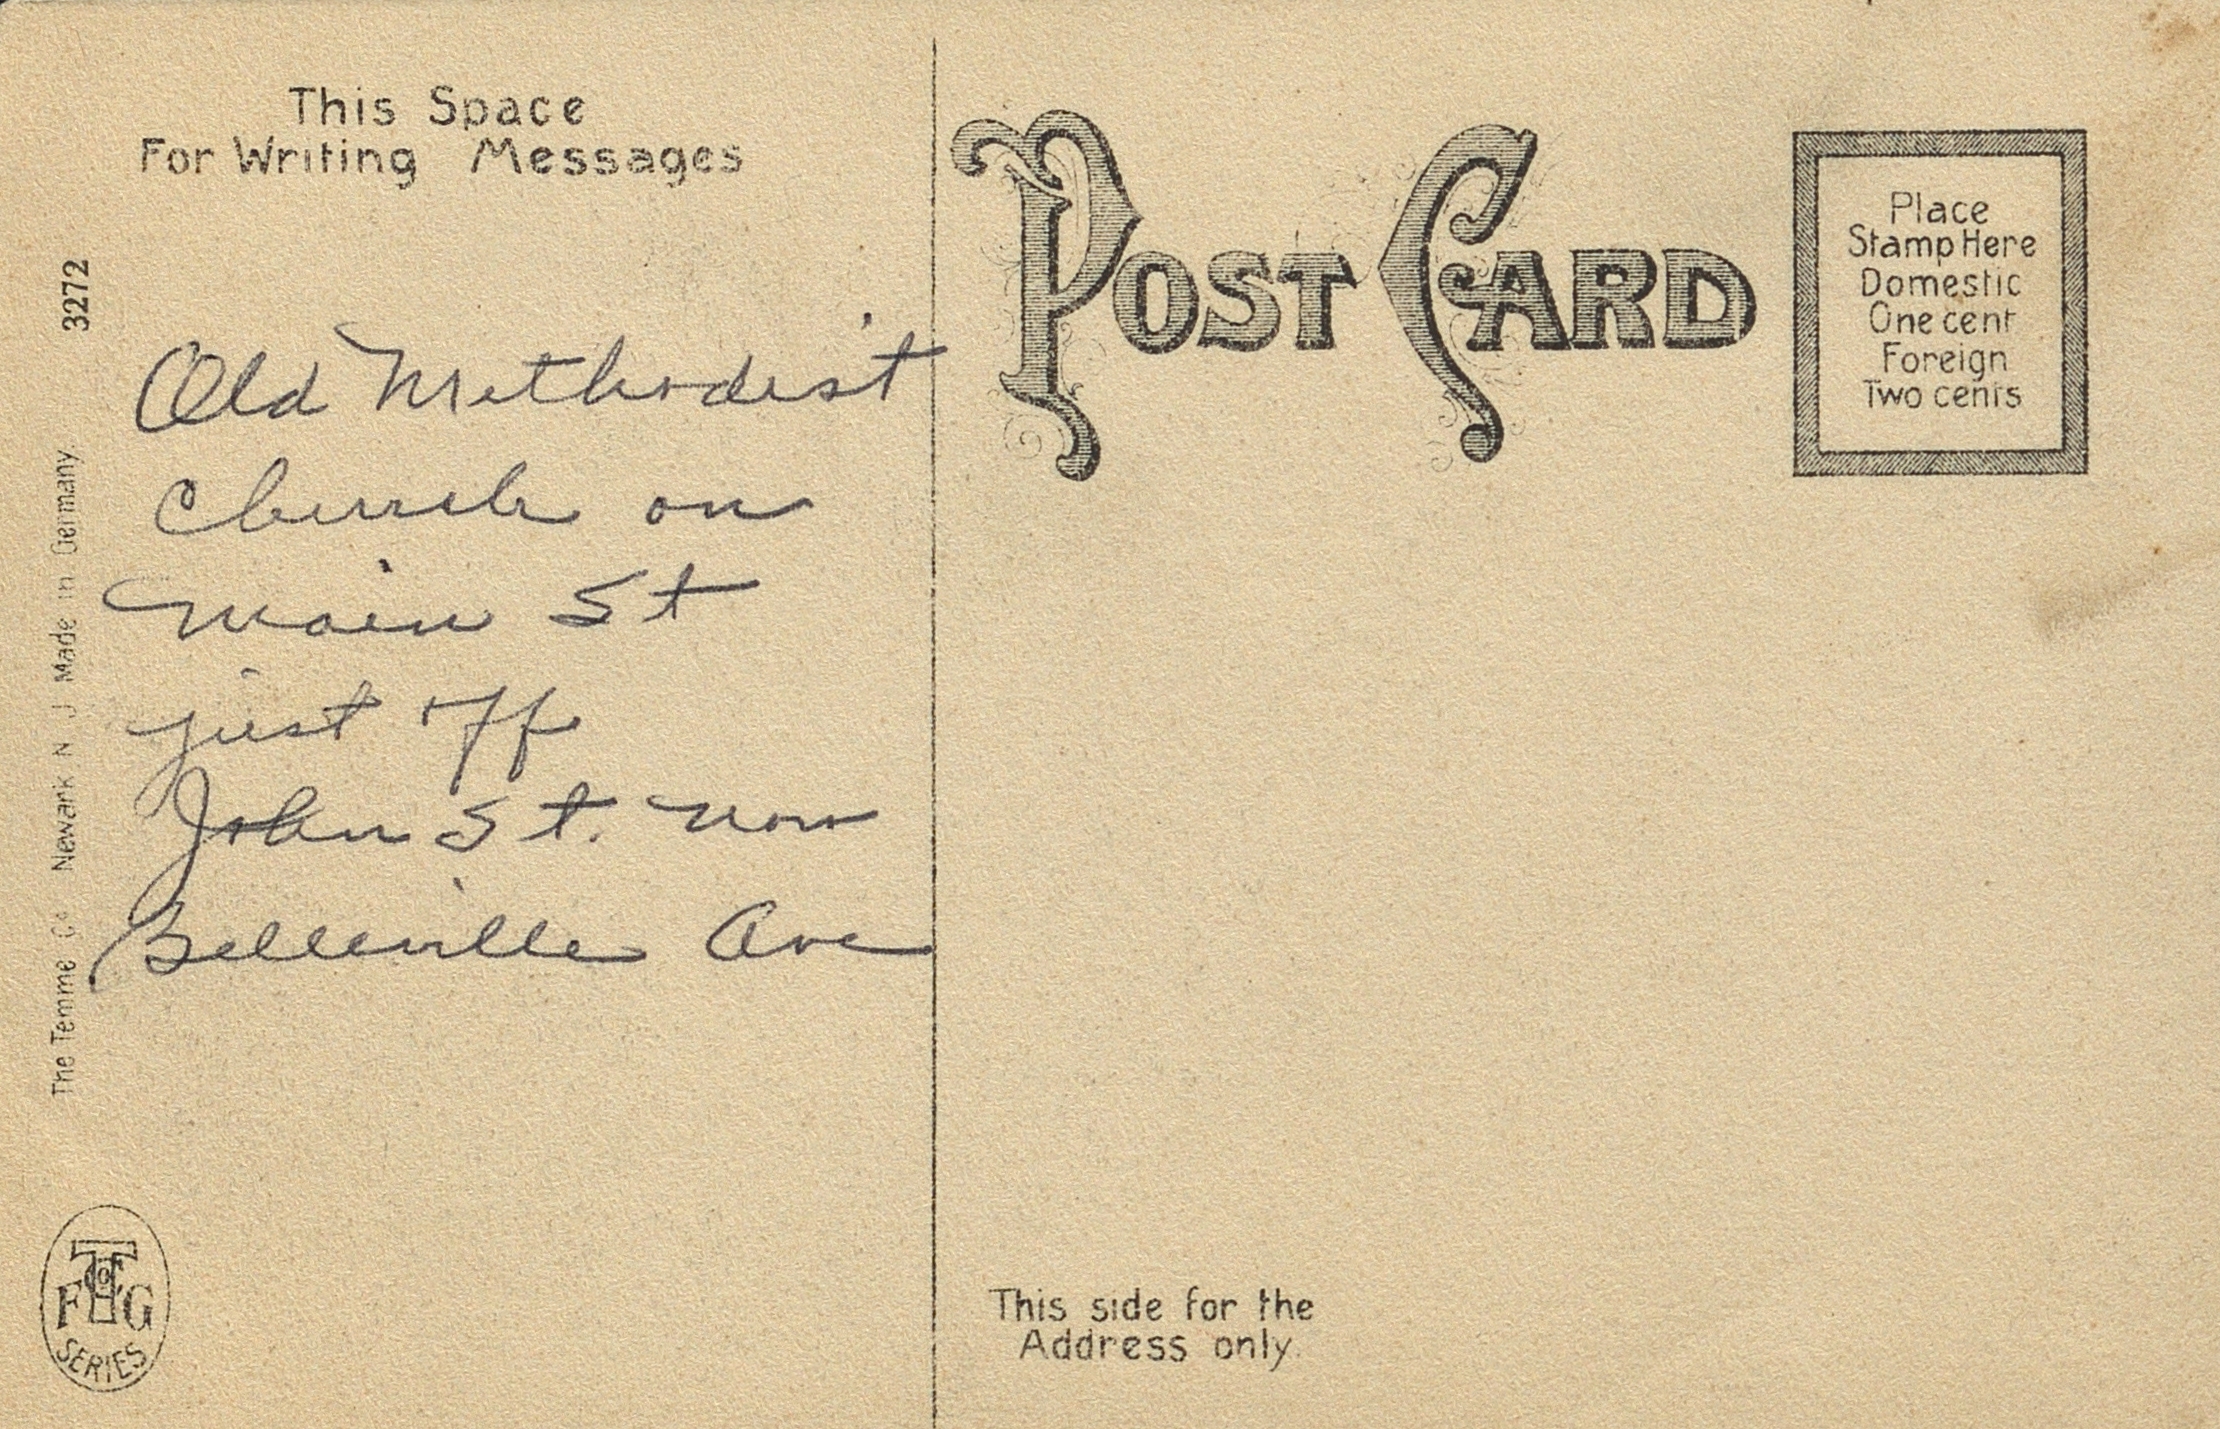 This Space
For Writing Messages
3272
Old Methodist
church on
main St
just off
John St. now
Belleville Ave
The Temme Co Newark N J Made in Germany.
T
Co
F G
SERIES
POST CARD
Place
Stamp Here
Domestic
One cent
Foreign
Two cents
This side for the
Address only.